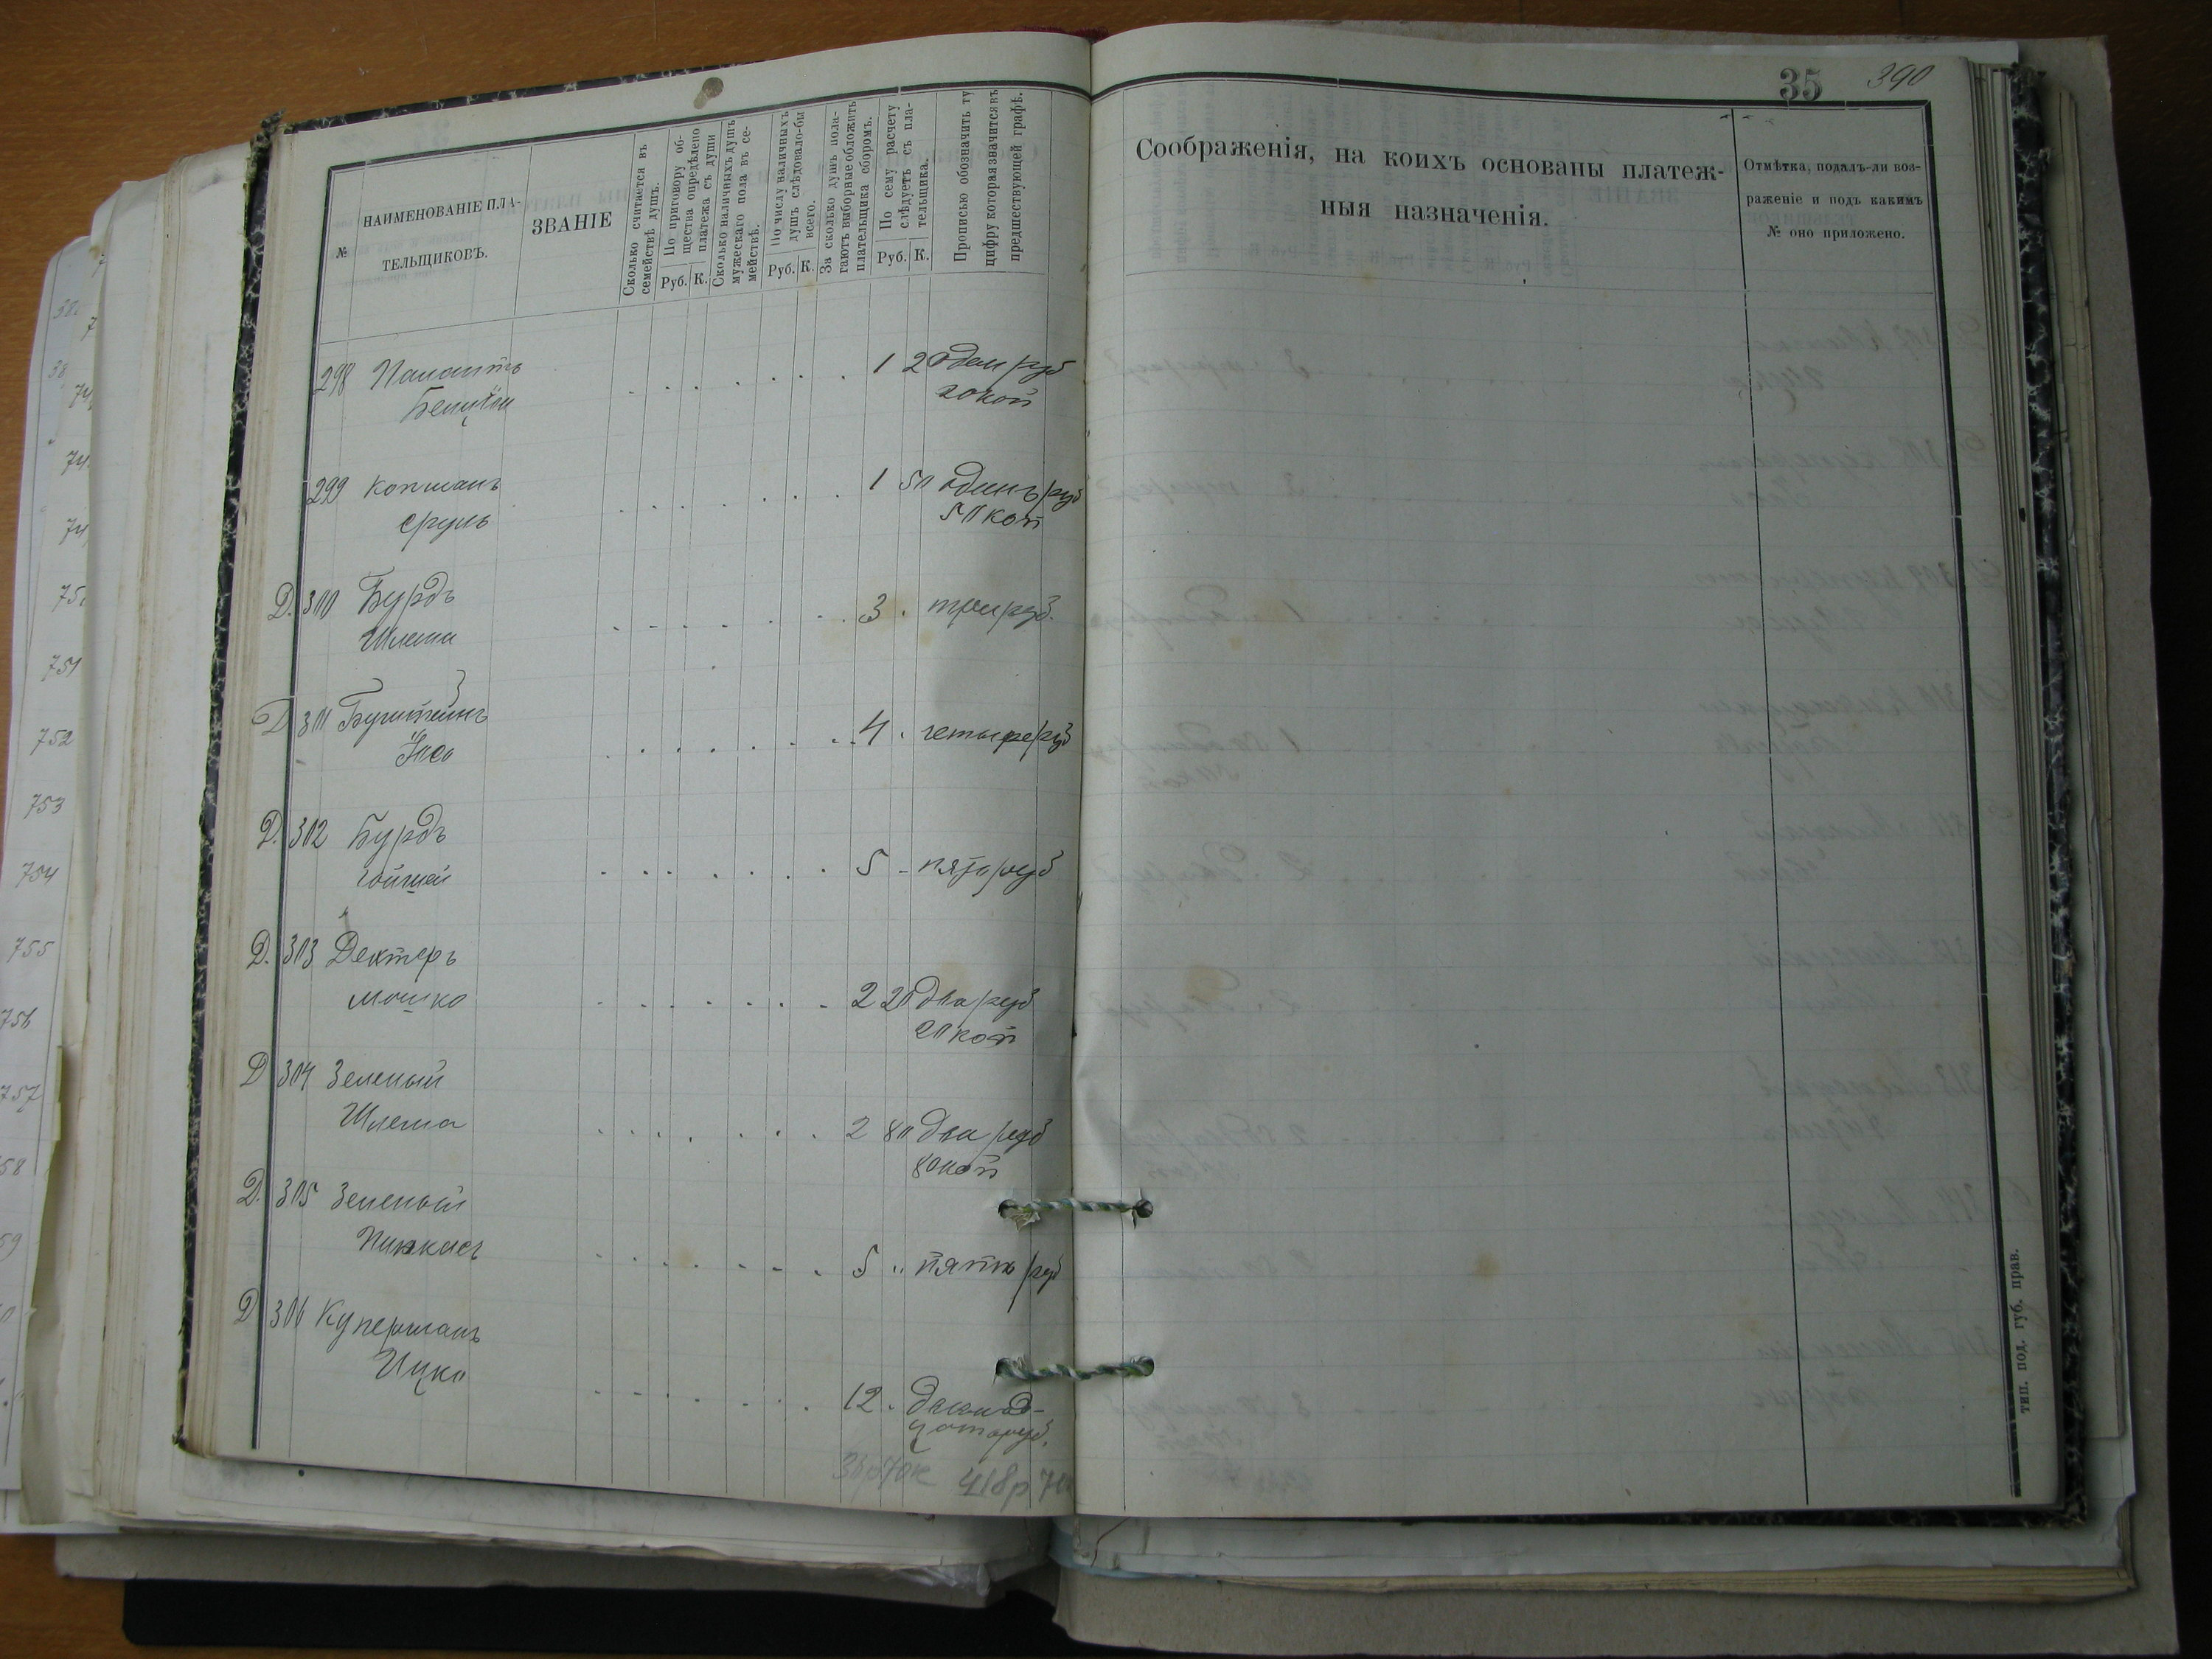 35 390
№
НАИМЕНОВАНІЕ ПЛА-
ТЕЛЬЩИКОВЪ.
ЗВАНІЕ
Сколько считается въ
семействѣ душъ.
По приговору об-
щества опредѣлено
платежа съ души
Руб. К.
Сколько наличныхъ душъ
мужескаго пола въ се-
мействѣ.
По числу наличныхъ
душъ слѣдовало-бы
всего.
Руб. К.
За сколько душъ пола-
гаютъ выборные обложить
плательщика сборомъ.
По сему расчету
слѣдуетъ съ пла-
тельщика.
Руб. К.
Прописью обозначить ту
цифру которая значится въ
предшествующей графѣ.
298 1 20 один руб
20 коп
299 Копманъ 1 50 одинъ руб
Сруль 50 коп
Д. 300 Бурдъ
Шлема 3 . три руб.
Д 301
4 . четыре руб
Д. 302 Бурдъ
5 - пять руб
Д. 303 Дектеръ
Мошко 2 20 два руб
20 коп
Д 304 Зеленый
Шлема 2 80 два руб
80 коп
Д. 305 Зеленый
Пинкасъ 5 " пять руб
Д 306 Куперманъ
Ицко 12 . двенад-
цать руб.
36р70к 418р 70
Соображенія, на коихъ основаны платеж-
ныя назначенія.
Отмѣтка, подалъ-ли воз-
раженіе и подъ какимъ
№ оно приложено.
тип. под. губ. прав.
38
74
751
752
753
754
755
756
757
58
59